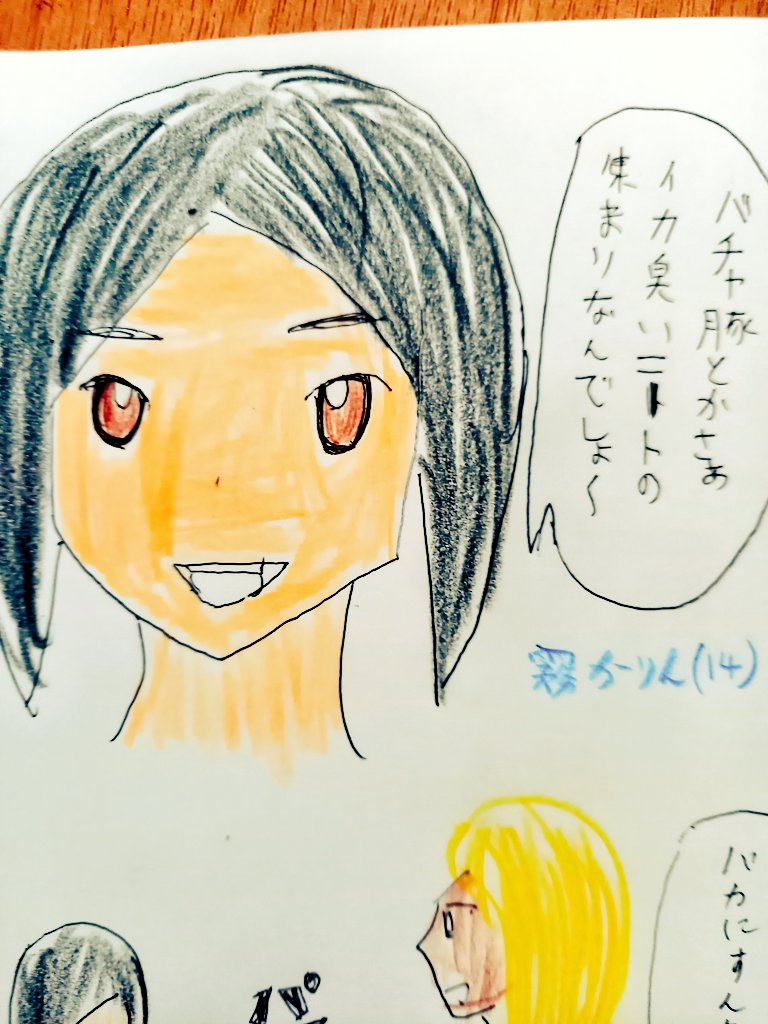 バチャ豚とかさぁ
イカ臭いニートの
集まりなんでしょ〜
霧かーりん(14)
バカにすん